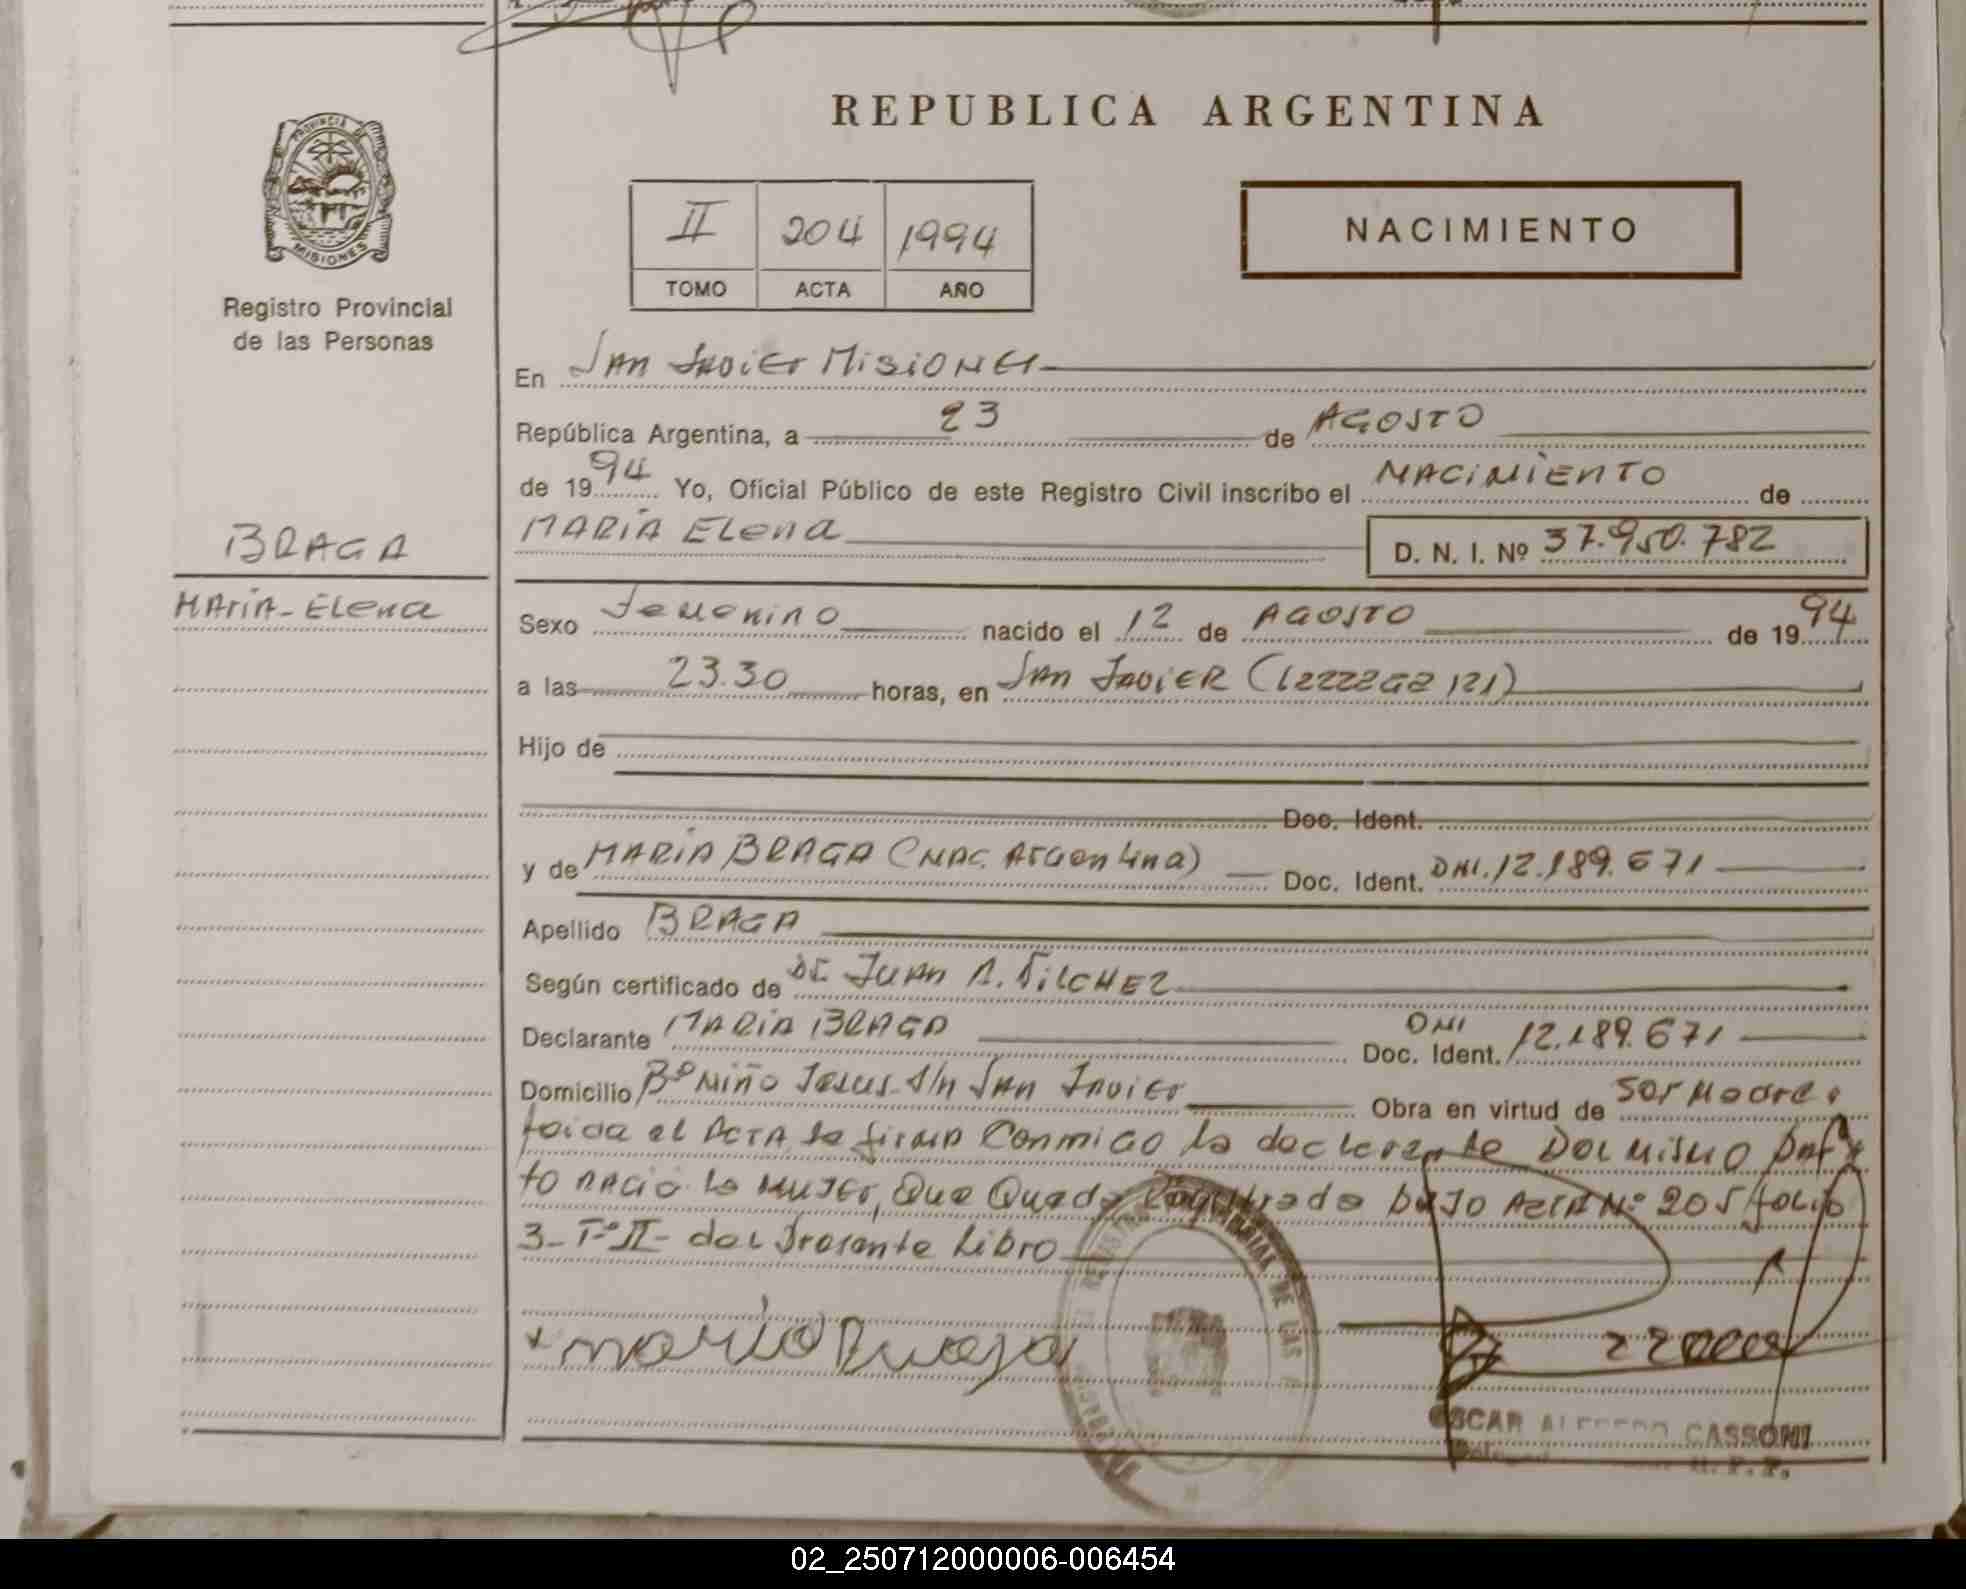 PROVINCIA DE
MISIONES
Registro Provincial
de las Personas
BRAGA
MARIA-ELENA
REPUBLICA ARGENTINA
II 204 1994
TOMO ACTA AÑO
NACIMIENTO
En SAN JAVIER MISIONES
República Argentina, a 23 de AGOSTO
de 1994 Yo, Oficial Público de este Registro Civil inscribo el NACIMIENTO de
MARIA ELENA D. N. I. Nº 37.950.782
Sexo Femenino nacido el 12 de AGOSTO de 1994
a las 23.30 horas, en SAN JAVIER
Hijo de
Doc. Ident.
y de MARIA BRAGA (NAC. Argentina) Doc. Ident. DNI.12.189.671
Apellido BRAGA
Según certificado de Dr. JUAN A. VILCHEZ
Declarante MARIA BRAGA Doc. Ident. DNI 12.189.671
Domicilio Bº Niño Jesus S/n SAN JAVIER Obra en virtud de ser Madre.
Leida el ACTA la firma conmigo la declarante Del mismo Par
to nació la Mujer, Que Queda registrada bajo ACTA Nº 205 folio
3-Tº II- del Presente Libro
x maria Braga
OSCAR ALFREDO CASSONI
R. P. P.
02_250712000006-006454